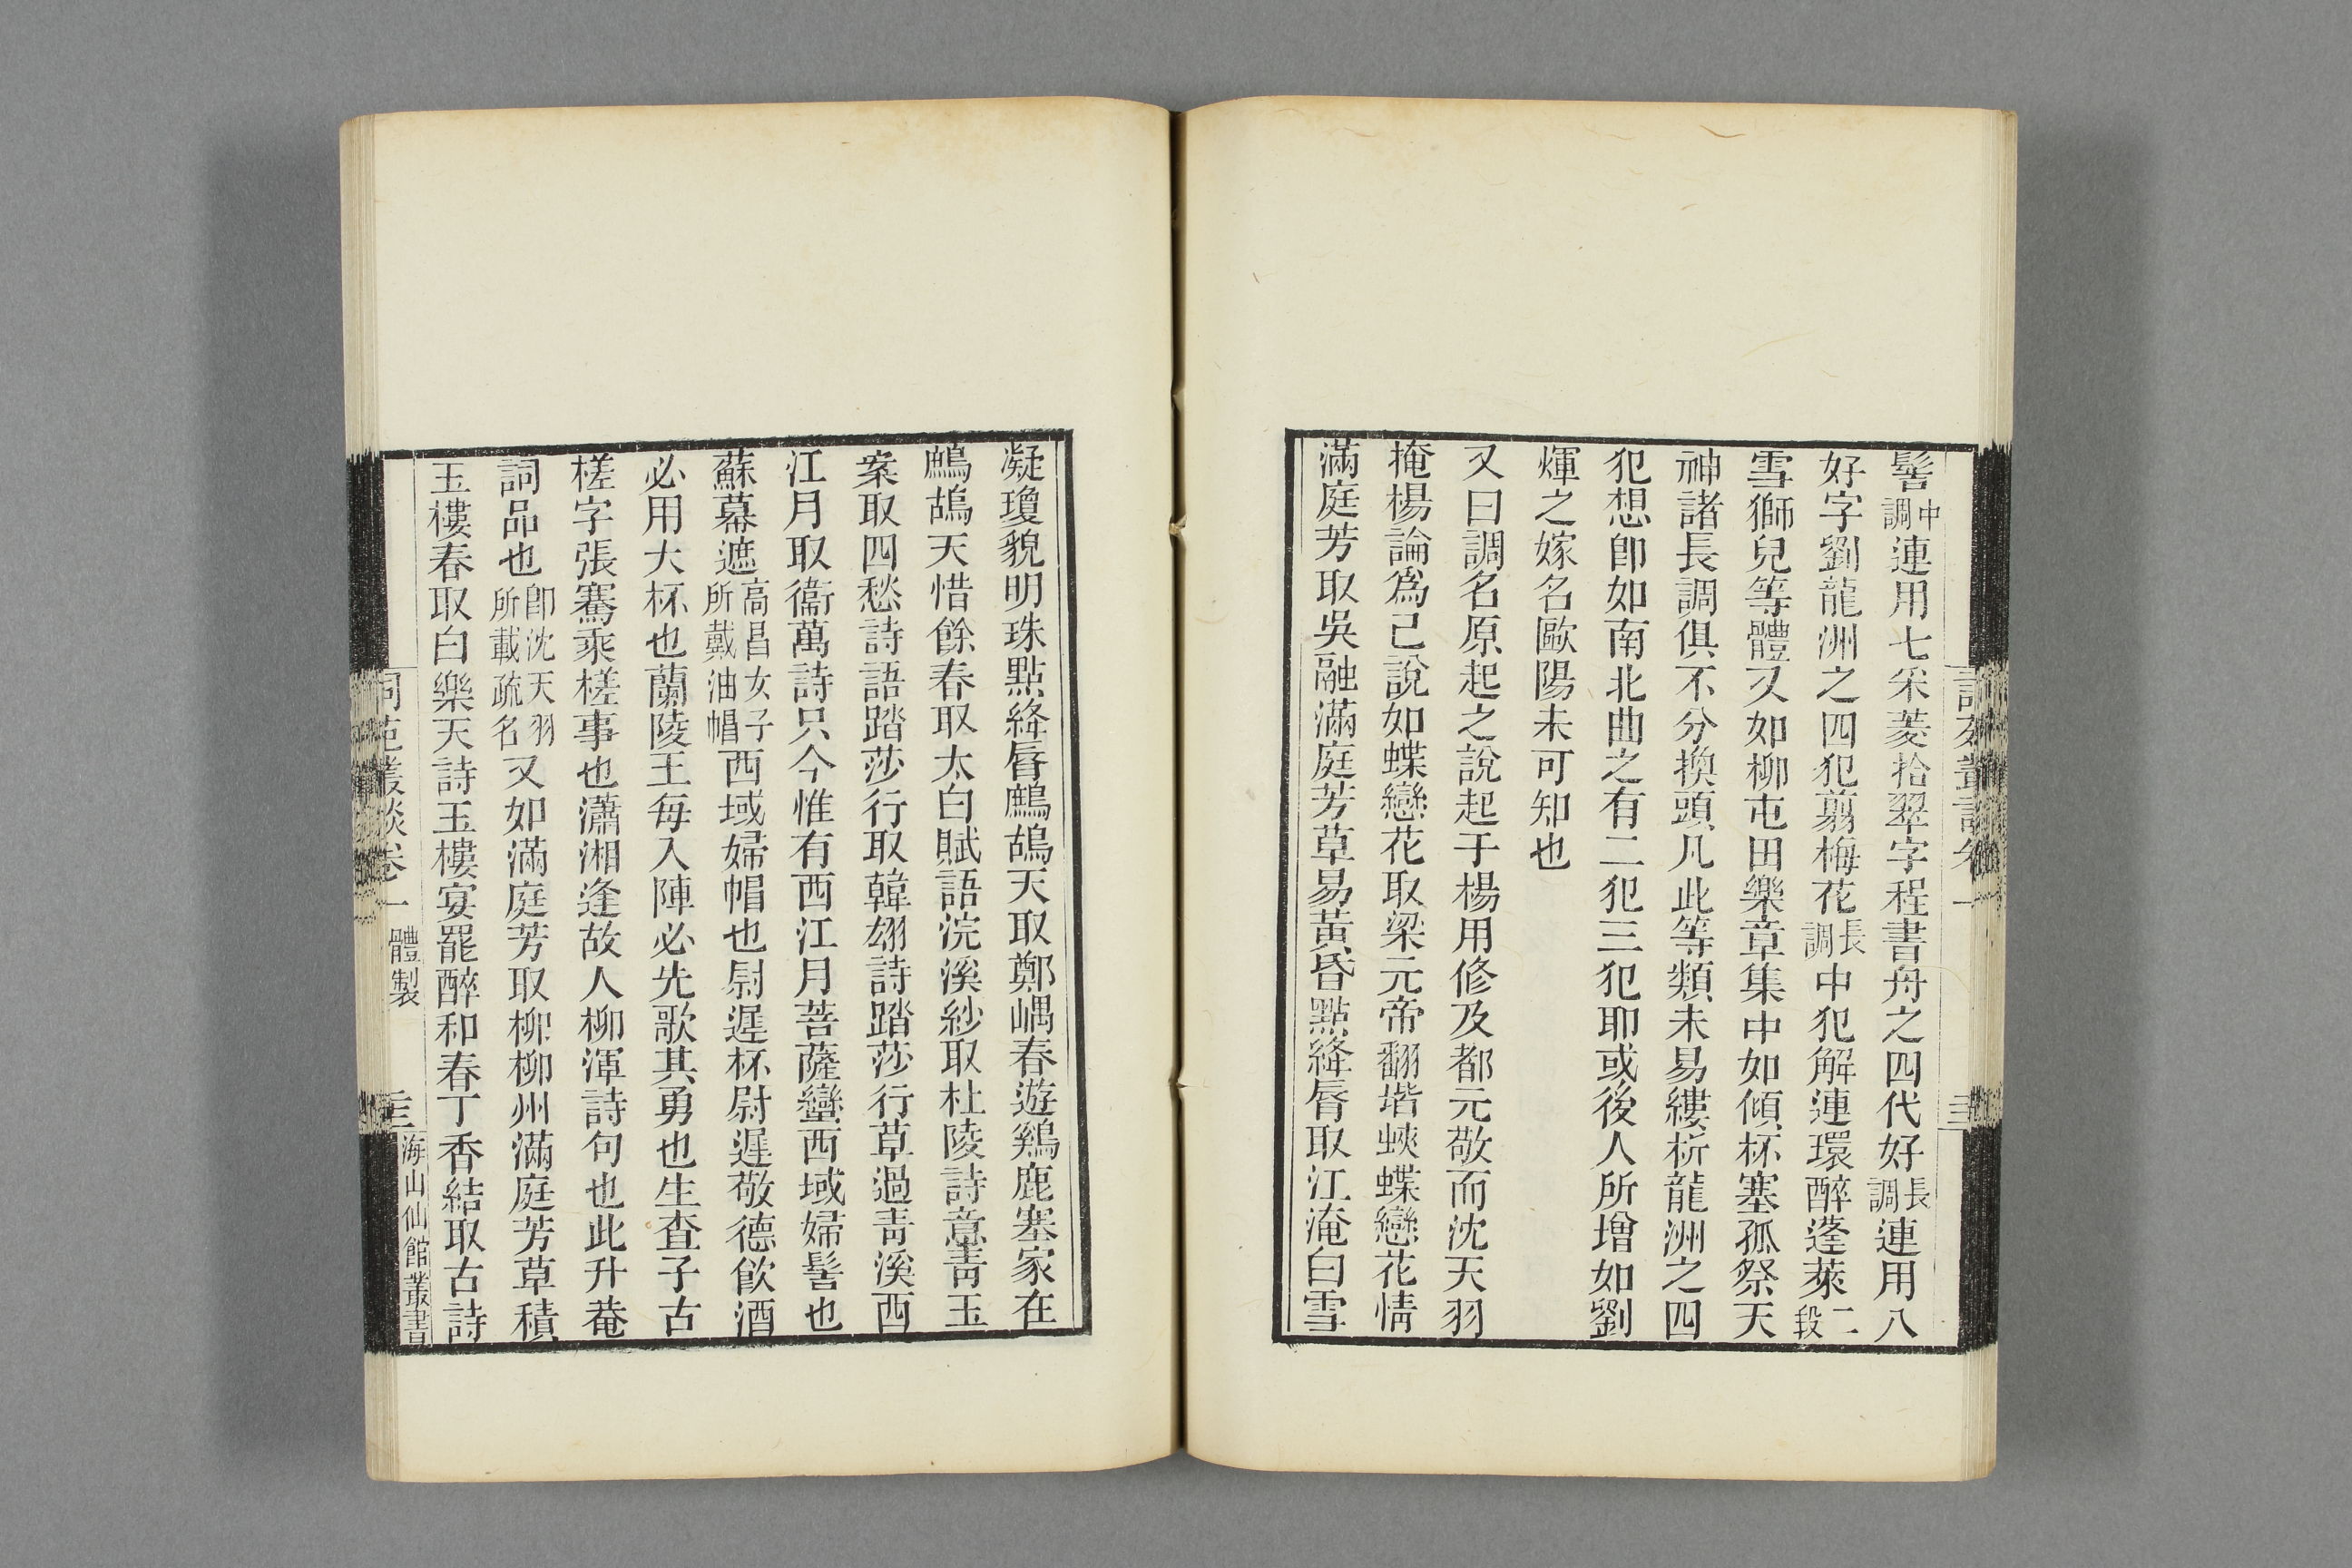 髻中調連用七采菱拾翠字程書舟之四代好長調連用八
好字劉龍洲之四犯翦梅花長調中犯解連環醉蓬萊二段
雪獅兒等體又如柳屯田樂章集中如傾杯塞孤祭天
神諸長調俱不分換頭凡此等類未易縷析龍洲之四
犯想卽如南北曲之有二犯三犯耶或後人所增如劉
煇之嫁名歐陽未可知也
又曰調名原起之說起于楊用修及都元敬而沈天羽
掩楊論爲己說如蝶戀花取梁元帝翻堦蛺蝶戀花情
滿庭芳取吳融滿庭芳草易黃昏點絳脣取江淹白雪
凝瓊貌明珠點絳脣鷓鴣天取鄭嵎春遊鷄鹿塞家在
鷓鴣天惜餘春取太白賦語浣溪紗取杜陵詩意靑玉
案取四愁詩語踏莎行取韓翃詩踏莎行草過靑溪西
江月取衞萬詩只今惟有西江月菩薩蠻西域婦髻也
蘇幕遮高昌女子所戴油帽西域婦帽也尉遲杯尉遲敬德飮酒
必用大杯也蘭陵王每入陣必先歌其勇也生査子古
槎字張騫乘槎事也瀟湘逢故人柳渾詩句也此升菴
詞品也卽沈天羽所載疏名又如滿庭芳取柳柳州滿庭芳草積
玉樓春取白樂天詩玉樓宴罷醉和春丁香結取古詩
詞苑叢談卷一 體製 海山仙館叢書